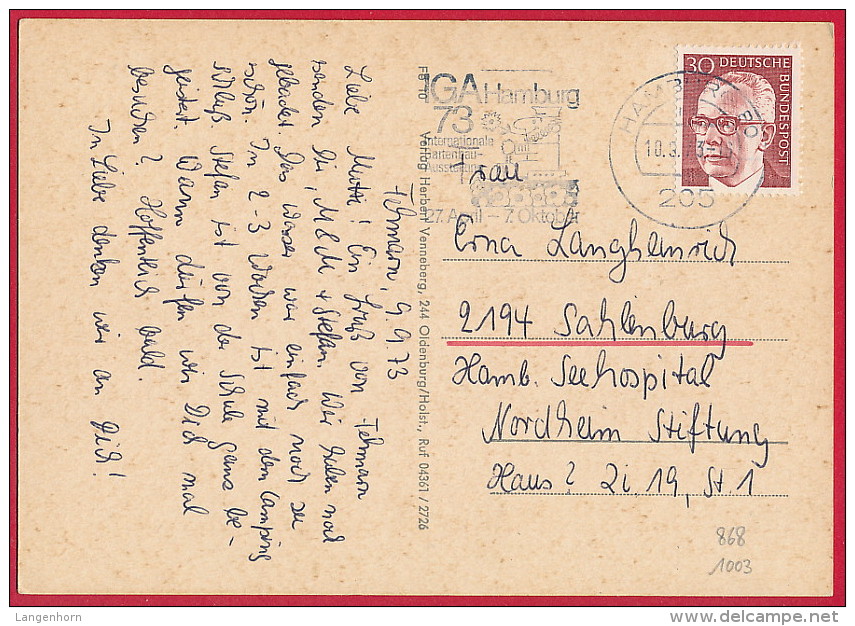 Fehmarn, 9.9.73
Liebe Mutti! Ein Gruß von Fehmarn
senden Dir, M & M + Stefan. Wir haben noch
gebadet. Das Wasser war einfach noch zu
schön. In 2-3 Wochen ist mit dem Camping
Schluß. Stefan ist von der Schule ganz be-
geistert. Wann dürfen wir Dich mal
besuchen? Hoffentlich bald.
In Liebe denken wir an Dich!
Verlag Herbert Venneberg, 244 Oldenburg/Holst., Ruf 04361 / 2726
IGA Hamburg
73
Internationale
Gartenbau-
Ausstellung
27. April – 7. Oktober
HAMBURG
205
30 DEUTSCHE BUNDESPOST
Frau
Erna Langheinrich
2194 Sahlenburg
Hamb. Seehospital
Nordheim Stiftung
Haus 2 Zi. 19, St. 1
868
1003
Langenhorn
www.delcampe.net